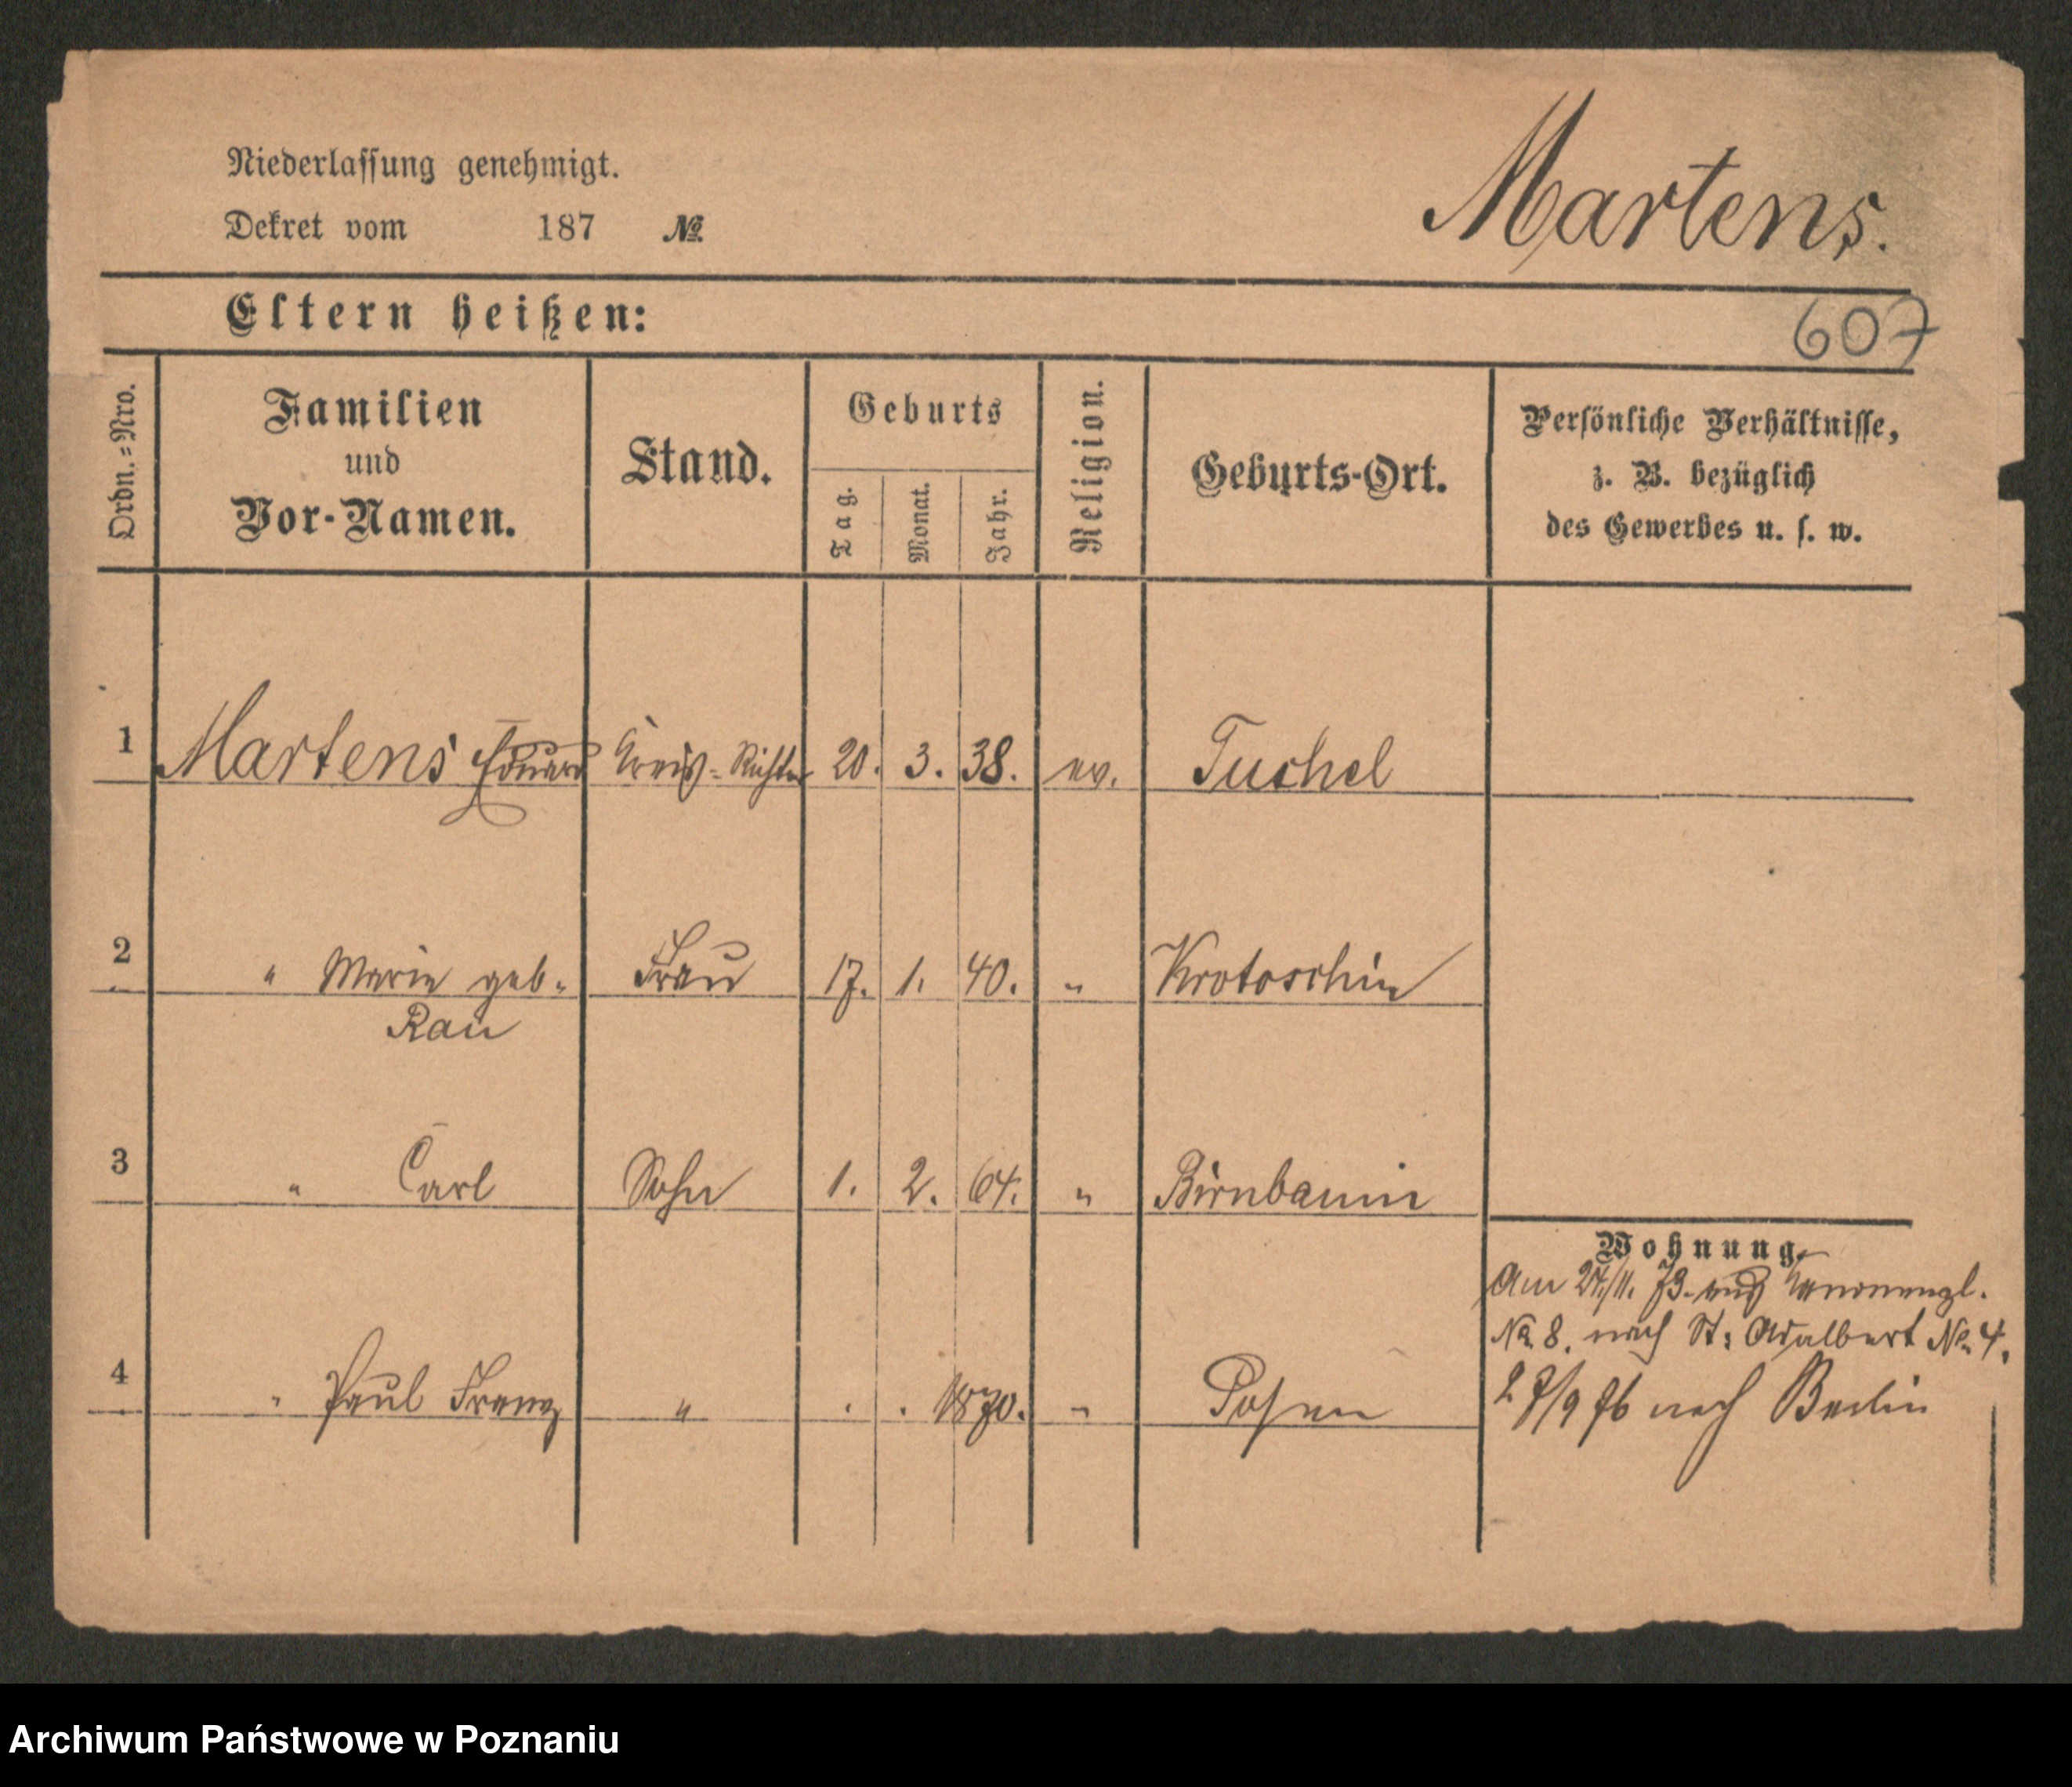 Niederlassung genehmigt.
Martens.
Dekret vom 187 №
Eltern heißen:
607
Ordn.=Nro.
Familien
und
Vor-Namen.
Stand.
Geburts
Tag.
Monat.
Jahr.
Religion.
Geburts-Ort.
Persönliche Verhältnisse,
z. B. bezüglich
des Gewerbes u. s. w.
1 Martens Eduard Kreis-Richter 20. 3. 38. ev. Tuchel
2 " Marie geb. Frau 17. 1. 40. " Krotoschin
Rau
3 " Carl Sohn 1. 2. 64. " Birnbaum
Wohnung.
Am 24/11. 73. aus Kanonenpl.
№ 8. nach St: Adalbert № 4.
4 " Paul Franz " . . 1870. " Posen
27/9 76 nach Berlin
Archiwum Państwowe w Poznaniu